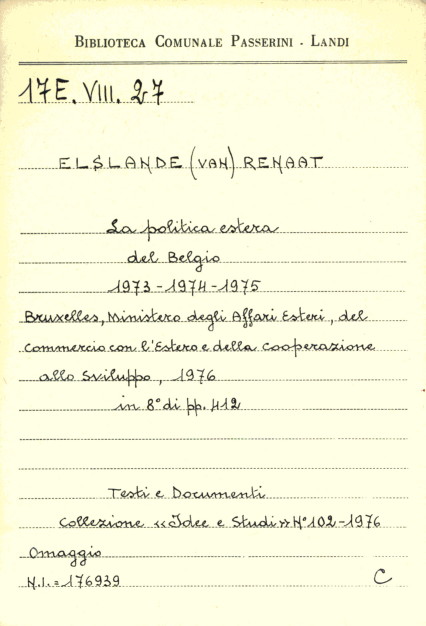 BIBLIOTECA COMUNALE PASSERINI - LANDI
17E. VIII. 27
ELSLANDE (VAN) RENAAT
La politica estera
del Belgio
1973-1974-1975
Bruxelles, Ministero degli Affari Esteri, del
Commercio con l'Estero e della Cooperazione
allo Sviluppo, 1976
in 8° di pp. 412
Testi e Documenti
Collezione «Idee e Studi» N° 102-1976
Omaggio
N.I.=176939 C